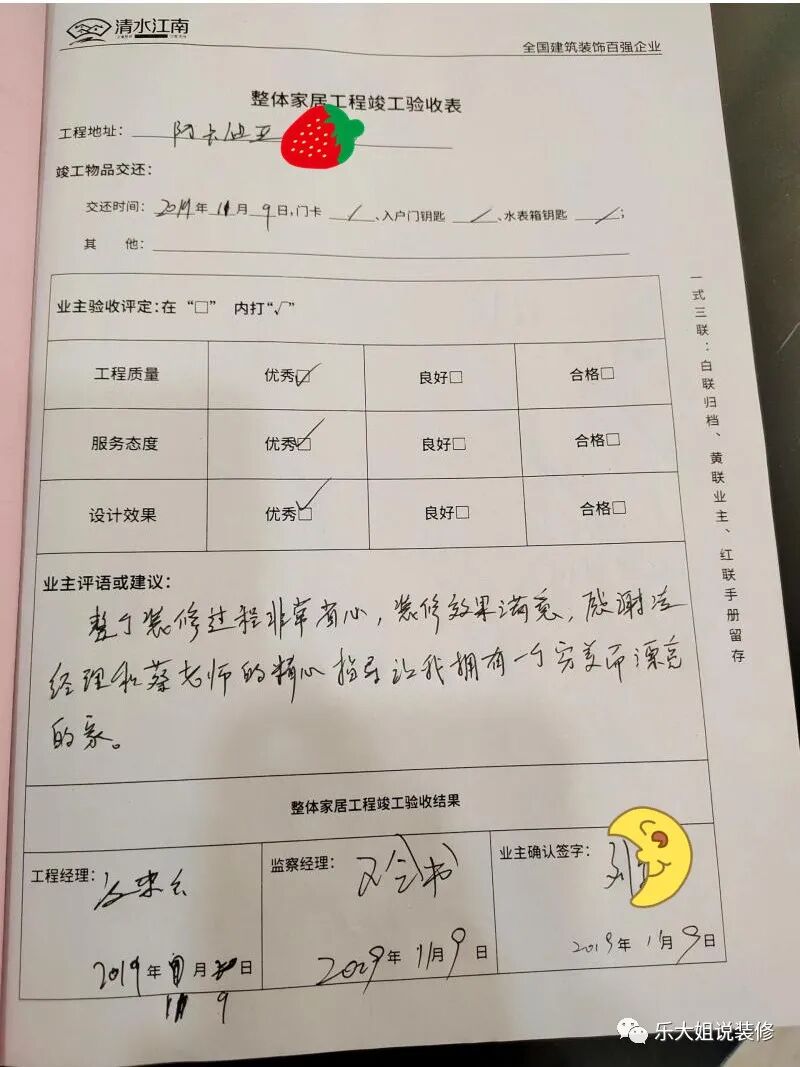 清水江南
全国建筑装饰百强企业
整体家居工程竣工验收表
工程地址: 阿卡迪亚
竣工物品交还:
交还时间: 2019年 11月 9日,门卡 / 、入户门钥匙 / 、水表箱钥匙 / ;
其 他:
业主验收评定:在 “□” 内打“√”
工程质量 优秀☑ 良好□ 合格□
服务态度 优秀☑ 良好□ 合格□
设计效果 优秀☑ 良好□ 合格□
业主评语或建议:
整个装修过程非常省心,装修效果满意,感谢
经理和蔡老师的精心指导让我拥有一个完美而漂亮
的家。
整体家居工程竣工验收结果
工程经理: 监察经理: 业主确认签字: 刘
2019年 月 日 2019年 11月 9日 2019年 11月 9日
11 9
一式三联:白联归档、黄联业主、红联手册留存
乐大姐说装修